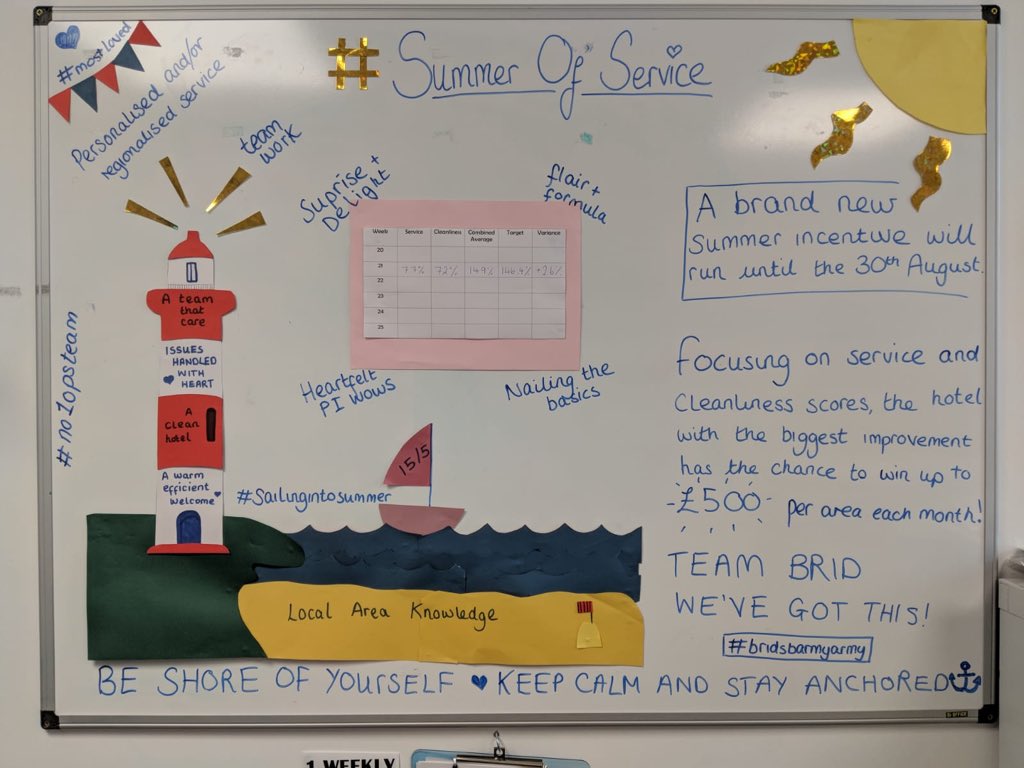 #mostloved
Personalised and/or
regionalised service
team
work
# Summer Of Service
Suprise +
Delight
flair +
formula
Week Service Cleanliness Combined Average Target Variance
20
21 77% 72% 149% 146.4% +2.6%
22
23
24
25
Heartfelt
PI wows
Nailing the
basics
#no1opsteam
A team
that
care
ISSUES
HANDLED
WITH
HEART
A
clean
hotel
A warm
efficient
welcome
#Sailingintosummer
15/5
Local Area Knowledge
A brand new
summer incentive will
run until the 30th August.
Focusing on service and
Cleanliness scores, the hotel
with the biggest improvement
has the chance to win up to
£500 per area each month!
TEAM BRID
WE'VE GOT THIS!
#bridsbarmyarmy
BE SHORE OF YOURSELF KEEP CALM AND STAY ANCHORED
1 WEEKLY